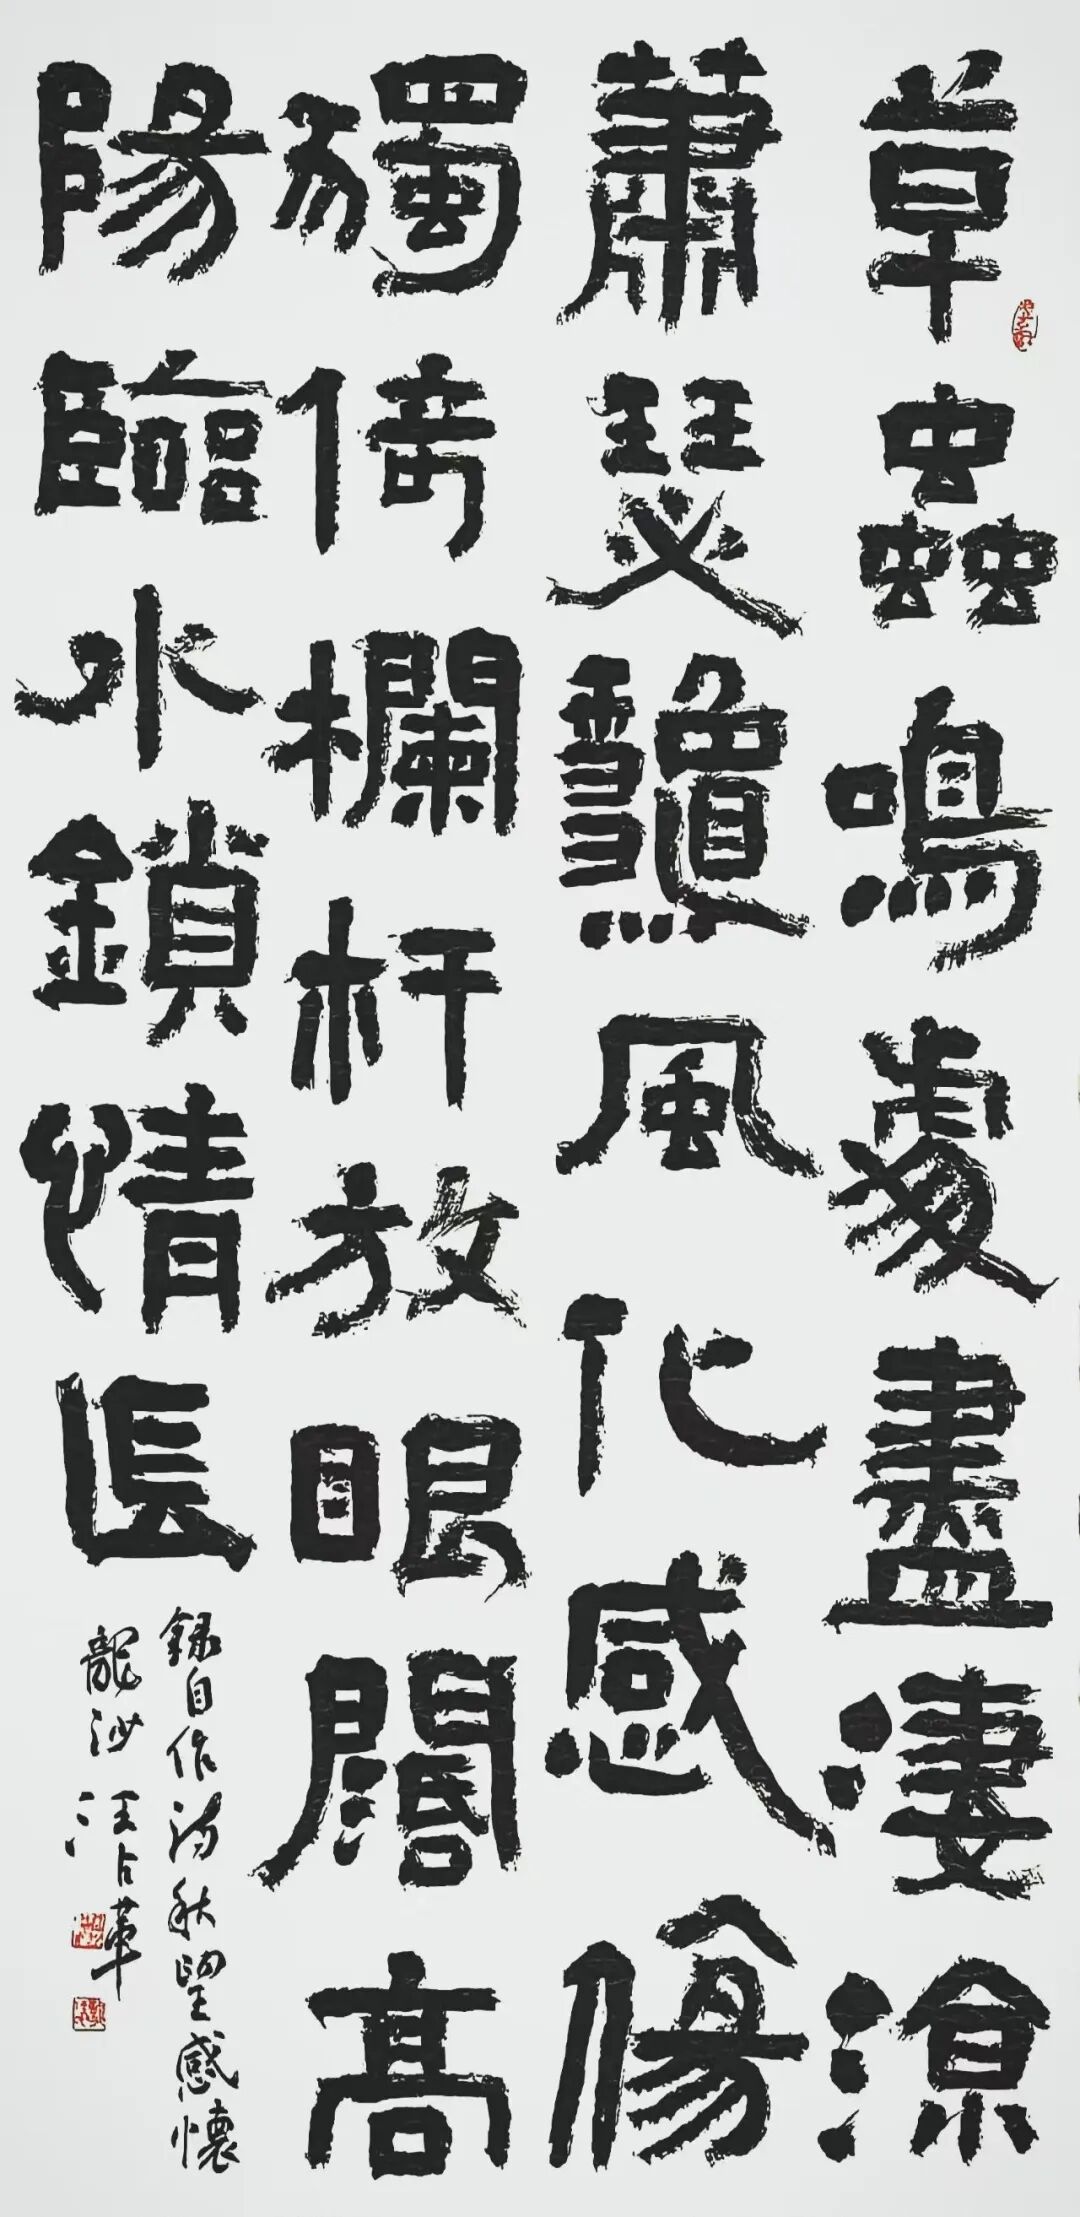 草蟲鳴處盡淒涼
蕭瑟風化感傷
獨倚欄杆放眼闊高
陽臨水鎖情長
錄自作詩秋望感懷
龍沙汪占革